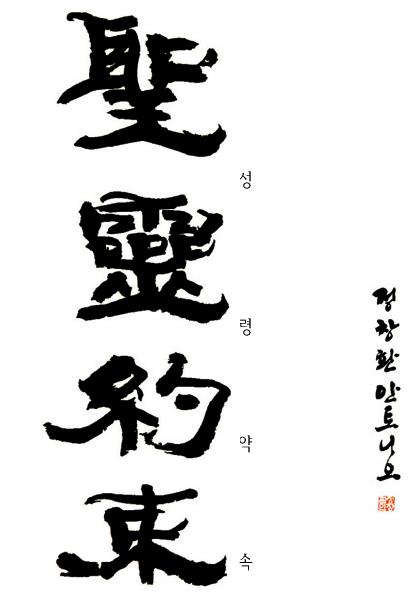 聖靈約束
성령약속
정창환안토니오